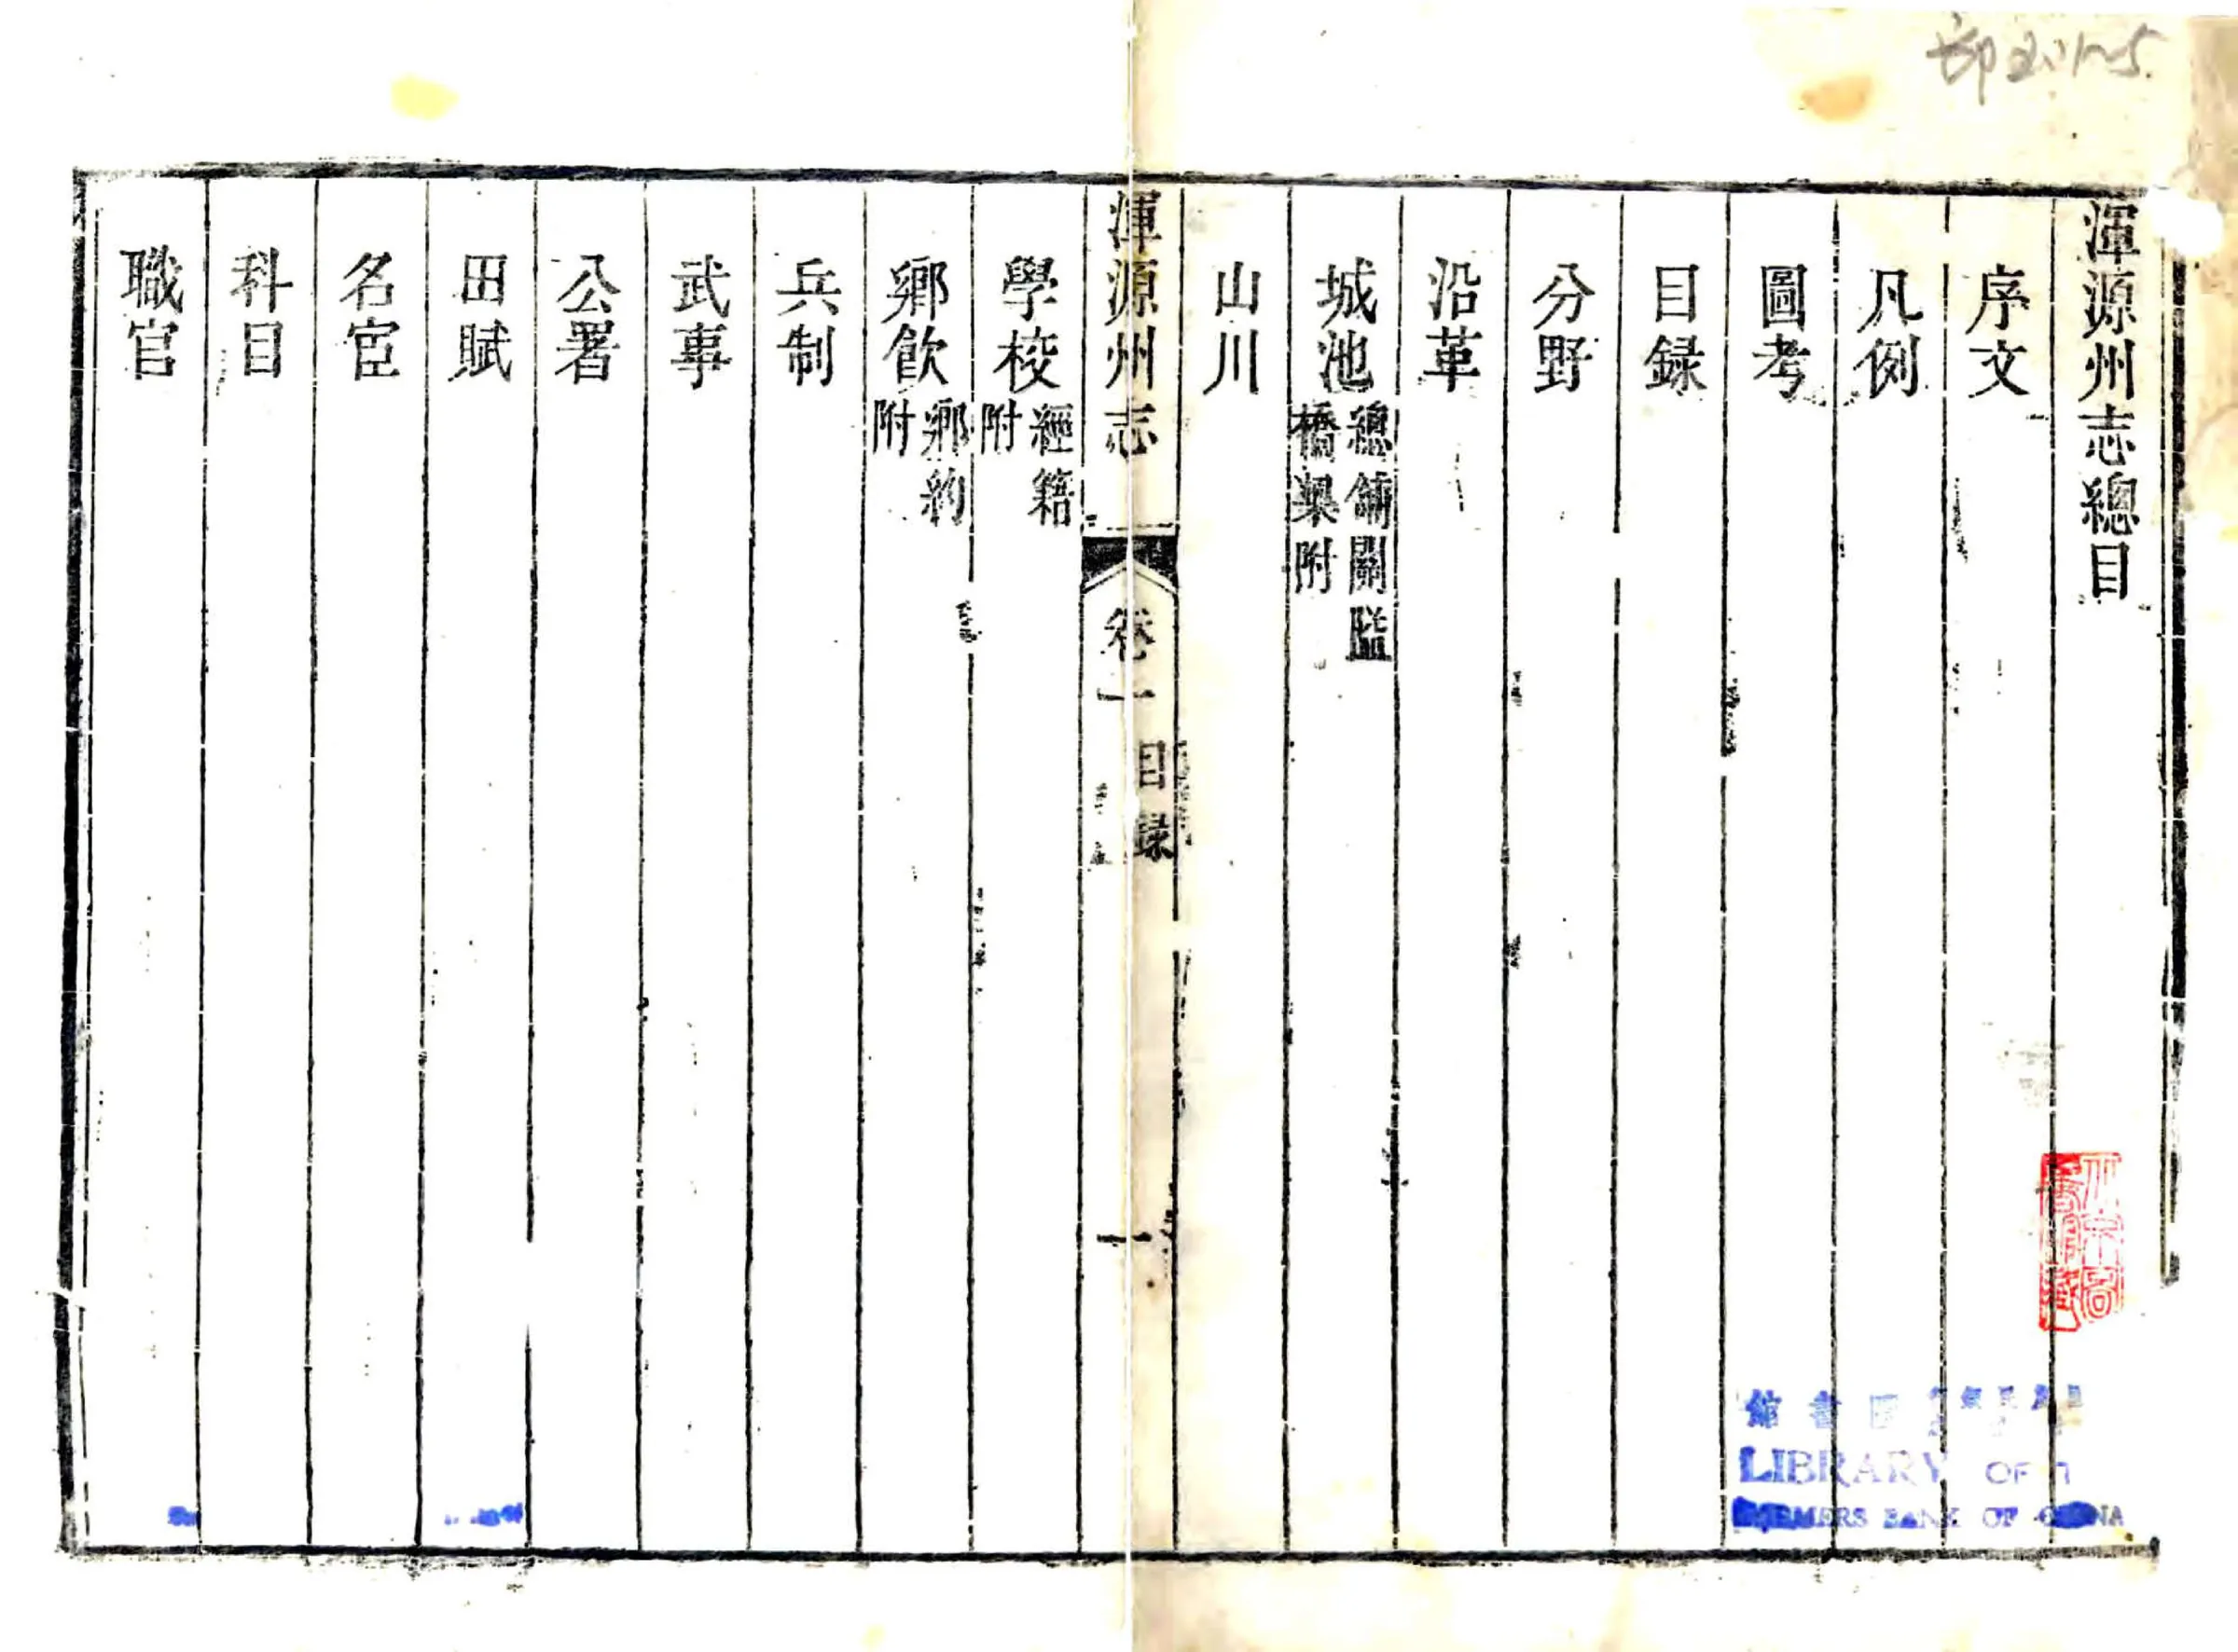 渾源州志總目
序文
凡例
圖考
目録
分野
沿革
城池 總鋪關隘
橋梁附
山川
渾源州志 卷一 目録 一
學校 經籍
附
鄉飲 鄉約
附
兵制
武事
公署
田賦
名宦
科目
職官
館書圖
LIBRARY OF
FARMERS BANK OF CHINA